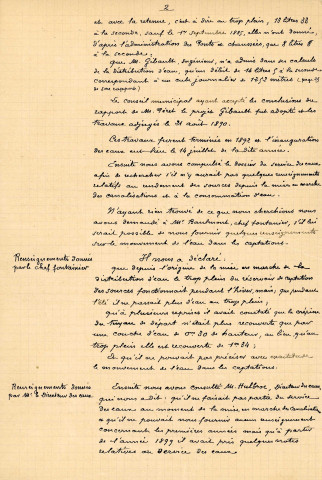 2
et avec la retenue, c'est à dire au trop plein, 18 litres 88
à la seconde, sauf le 1er septembre 1885, elles n'ont données,
d'après l'administration des Ponts et chaussées, que 8 litres 8
à la seconde.
que M. Gibault, Ingénieur, n'a admis dans ses calculs de
la distribution d'eau, qu'un débit de 14 litres 5 à la seconde
correspondant à un cube journalier de 1253 mètres (page
de son rapport)
Le conseil municipal ayant adopté les conclusions du
rapport de M. le projet Gibault fut adopté et les
travaux adjugés le 31 août 1890.
Ces travaux furent terminés en 1892 et l'inauguration
des eaux eut lieu le 14 juillet de la dite année.
Ensuite nous avons compulsé le dossier du service des eaux
afin de rechercher s'il n'y aurait pas quelques enseignements
relatifs au rendement des sources depuis la mise en marche
des canalisations et à la consommation d'eau.
N'ayant rien trouvé de ce que nous cherchions nous
avons demandé à Mr chef fontainier, s'il lui
serait possible de nous fournir quelques enseignements
sur le mouvement de l'eau dans les captations.
Renseignements donnés
par le chef fontainier
Il nous a déclaré:
que depuis l'origine de la mise en marche de la
distribution d'eau le trop plein du réservoir de captation
des sources fonctionnait pendant l'hiver, mais, que pendant
l'été il ne passait plus d'eau au trop plein;
qu'à plusieurs reprises il avait constaté que la crépine
du tuyau de départ n'était plus recouverte que par
une couche d'eau de 0m30 de hauteur, au lieu qu'au
trop plein elle est recouverte de 1m34;
Ce qu'il ne pouvait pas préciser avec certitude
le mouvement de l'eau dans les captations.
Renseignements donnés
par Mr le Directeur des eaux.
Ensuite nous avons consulté M. Directeur des eaux
qui nous a dit: qu'il ne faisait pas partie du service
des eaux au moment de la mise en marche des canalisations
et qu'il ne pouvait nous fournir aucun enseignement
concernant les premières années mais qu'à partir
de l'année 1899 il avait pris quelques notes
relatives au service des eaux